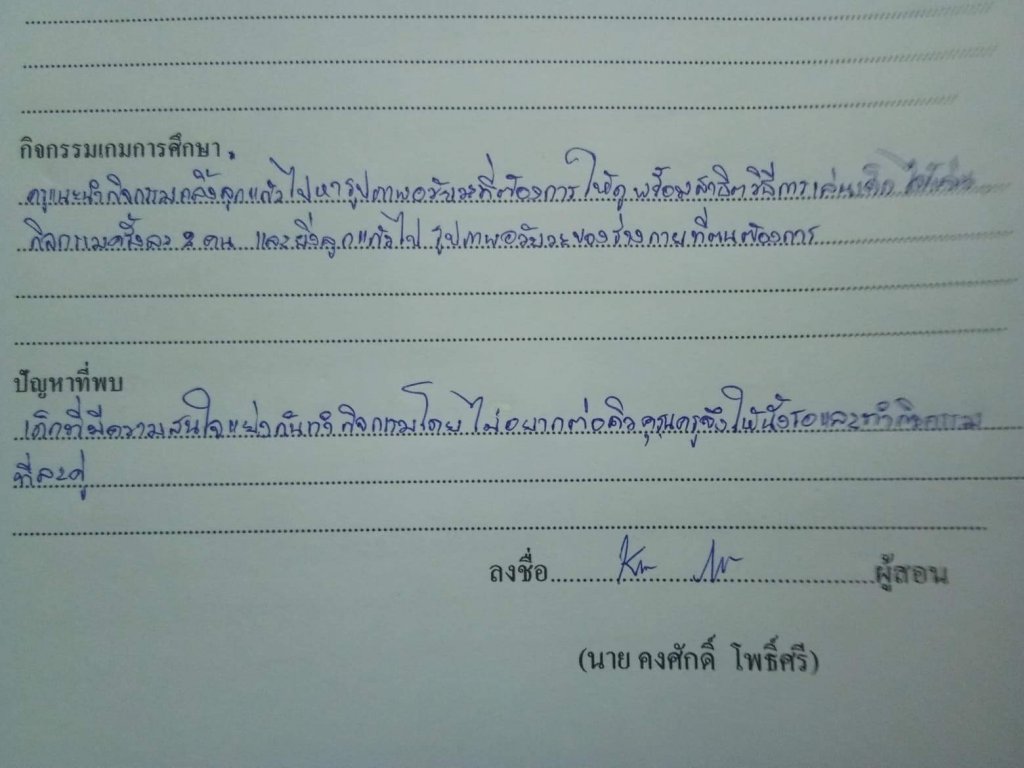 กิจกรรมเกมการศึกษา
ครูแนะนำกิจกรรมกลิ้งลูกแก้วไปหารูปภาพอวัยวะที่ต้องการให้ดู พร้อมสาธิตวิธีการเล่น
กิจกรรมครั้งละ 2 คน และยิงลูกแก้วไป รูปภาพอวัยวะของร่างกายที่ตนต้องการ
ปัญหาที่พบ
เด็กที่มีความสนใจแย่งกันทำกิจกรรมโดยไม่อยากต่อคิว คุณครูจึงให้นั่งรอและทำกิจกรรม
ทีละคู่
ลงชื่อ............................ผู้สอน
(นาย คงศักดิ์ โพธิ์ศรี)